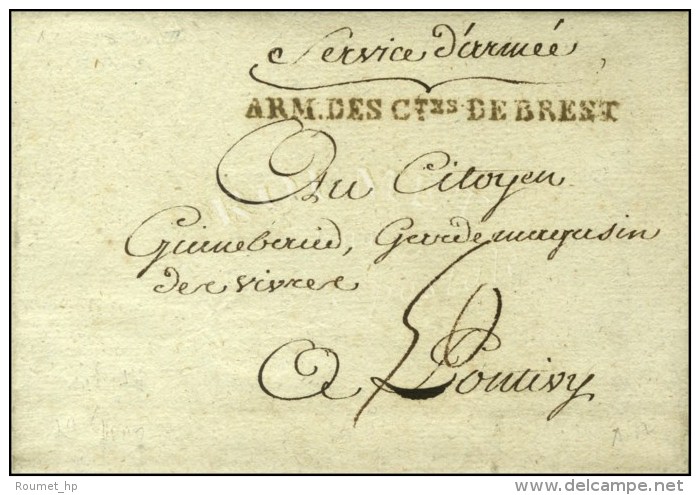 Service d'armée
ARM. DES CTES DE BREST
Au Citoyen
Guimeberied, Garde magasin
des vivres
5
A Pontivy
Roumet_hp
delcampe.net